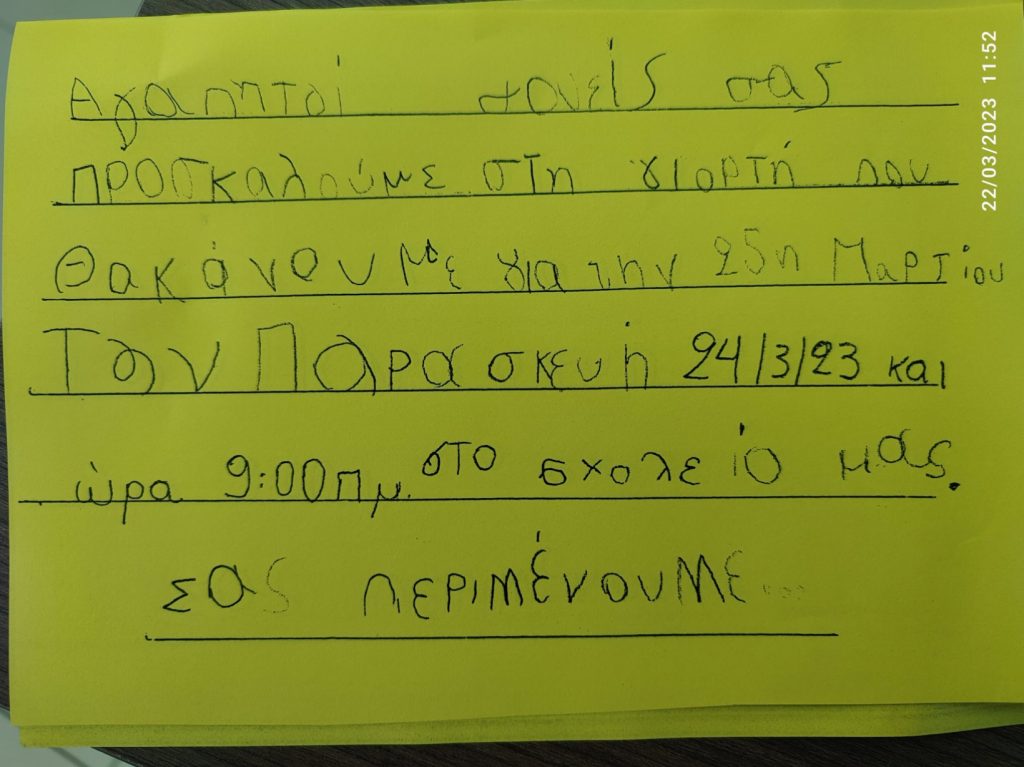 Αγαπητοί γονείς σας
προσκαλούμε στη γιορτή που
θα κάνουμε για την 25η Μαρτίου
Την Παρασκευή 24/3/23 και
ώρα 9:00πμ. στο σχολείο μας.
Σας περιμένουμε...
22/03/2023 11:52